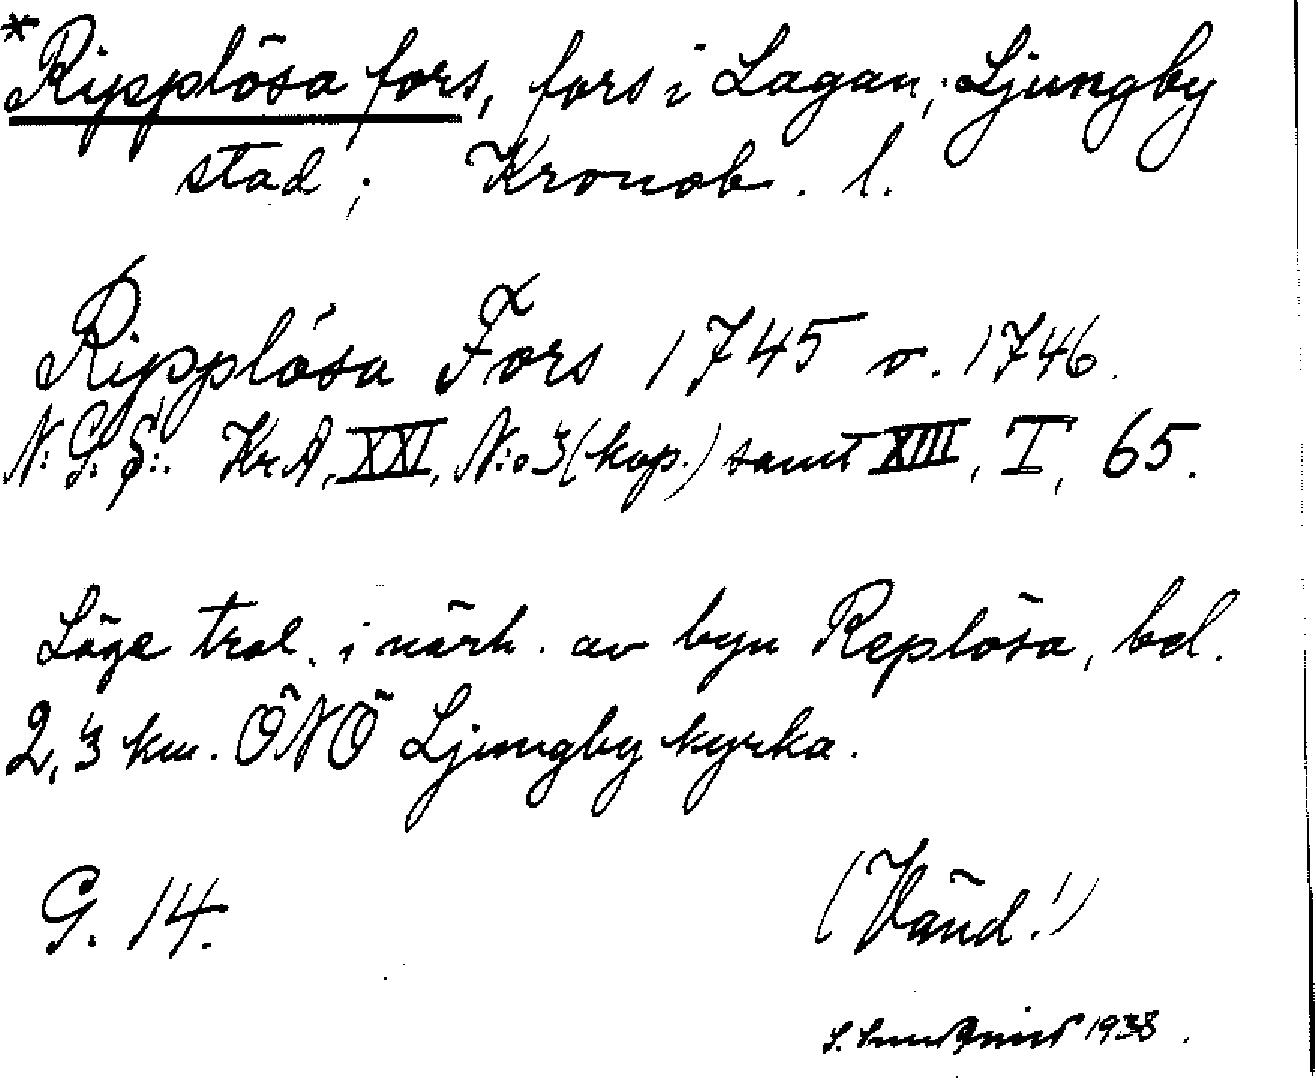 *Ripplösa fors, fors i Lagan; Ljungby
stad; Kronob. l.
Ripplösa Fors 1745 o. 1746.
N. G. S:. Kr A, XXI, N:o 3 (kop.) samt XIII, I, 65.
Läge trol. i närh. av byn Replösa, bel.
2,3 km. ÖNÖ Ljungby kyrka.
G. 14.
(Vänd!)
S. 1938.